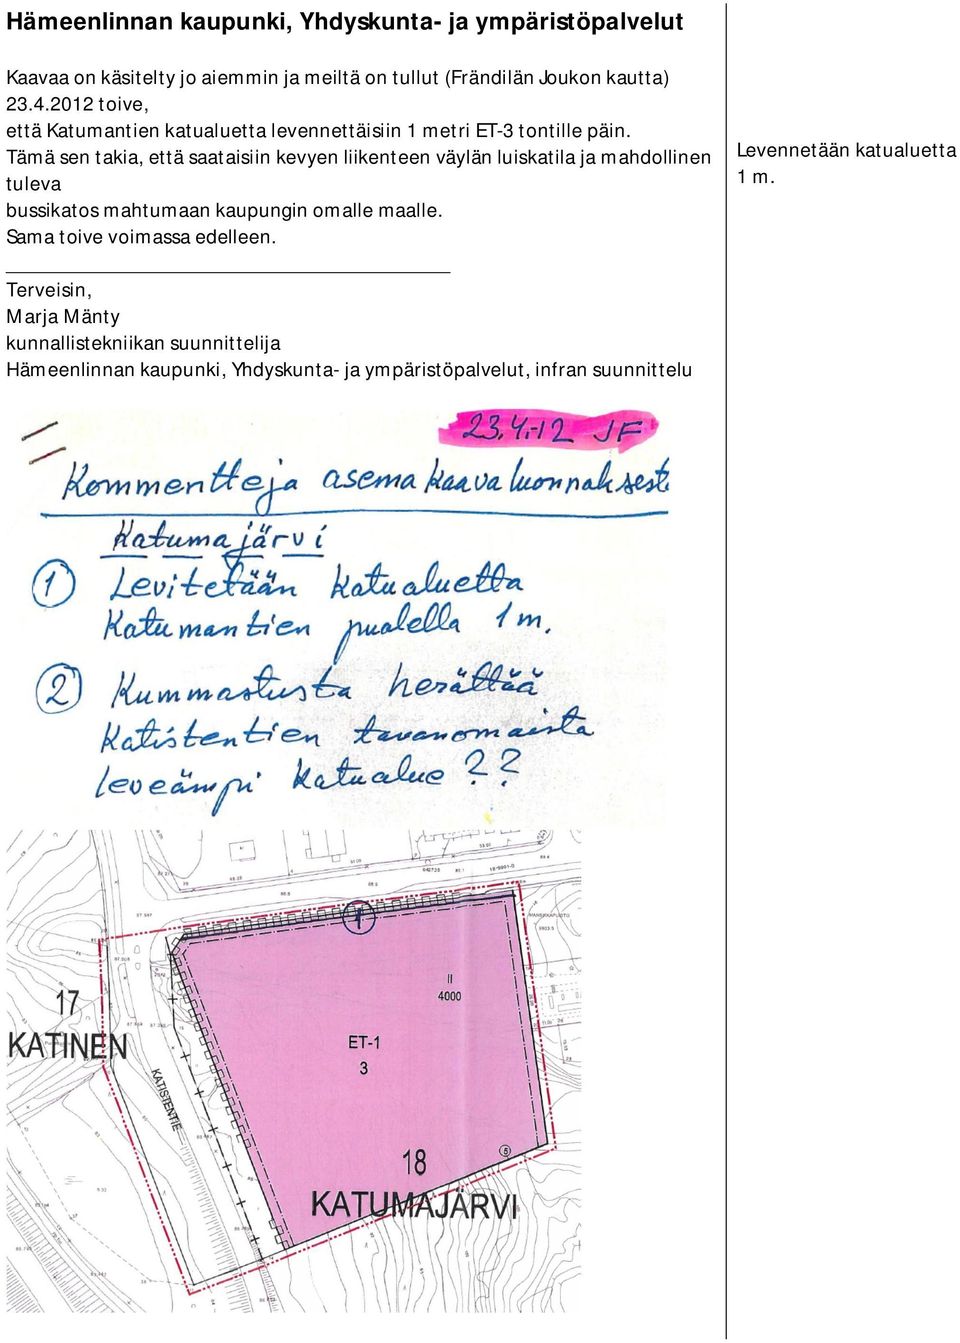 Hämeenlinnan kaupunki, Yhdyskunta- ja ympäristöpalvelut
Kaavaa on käsitelty jo aiemmin ja meiltä on tullut (Frändilän Joukon kautta)
23.4.2012 toive,
että Katumantien katualuetta levennettäisiin 1 metri ET-3 tontille päin.
Tämä sen takia, että saataisiin kevyen liikenteen väylän luiskatila ja mahdollinen
tuleva
bussikatos mahtumaan kaupungin omalle maalle.
Sama toive voimassa edelleen.
Levennetään katualuetta
1 m.
Terveisin,
Marja Mänty
kunnallistekniikan suunnittelija
Hämeenlinnan kaupunki, Yhdyskunta- ja ympäristöpalvelut, infran suunnittelu
23.4.-12 JF
Kommentteja asemakaavaluonnoksest
Katumajärvi
1 Levitetään katualuetta
Katumantien puolella 1 m.
2 Kummastusta herättää
Katistentien tavanomaista
leveämpi katualue ??
1
II
4000
17
KATINEN
ET-1
3
KATISTENTIE
5
18
KATUMAJÄRVI